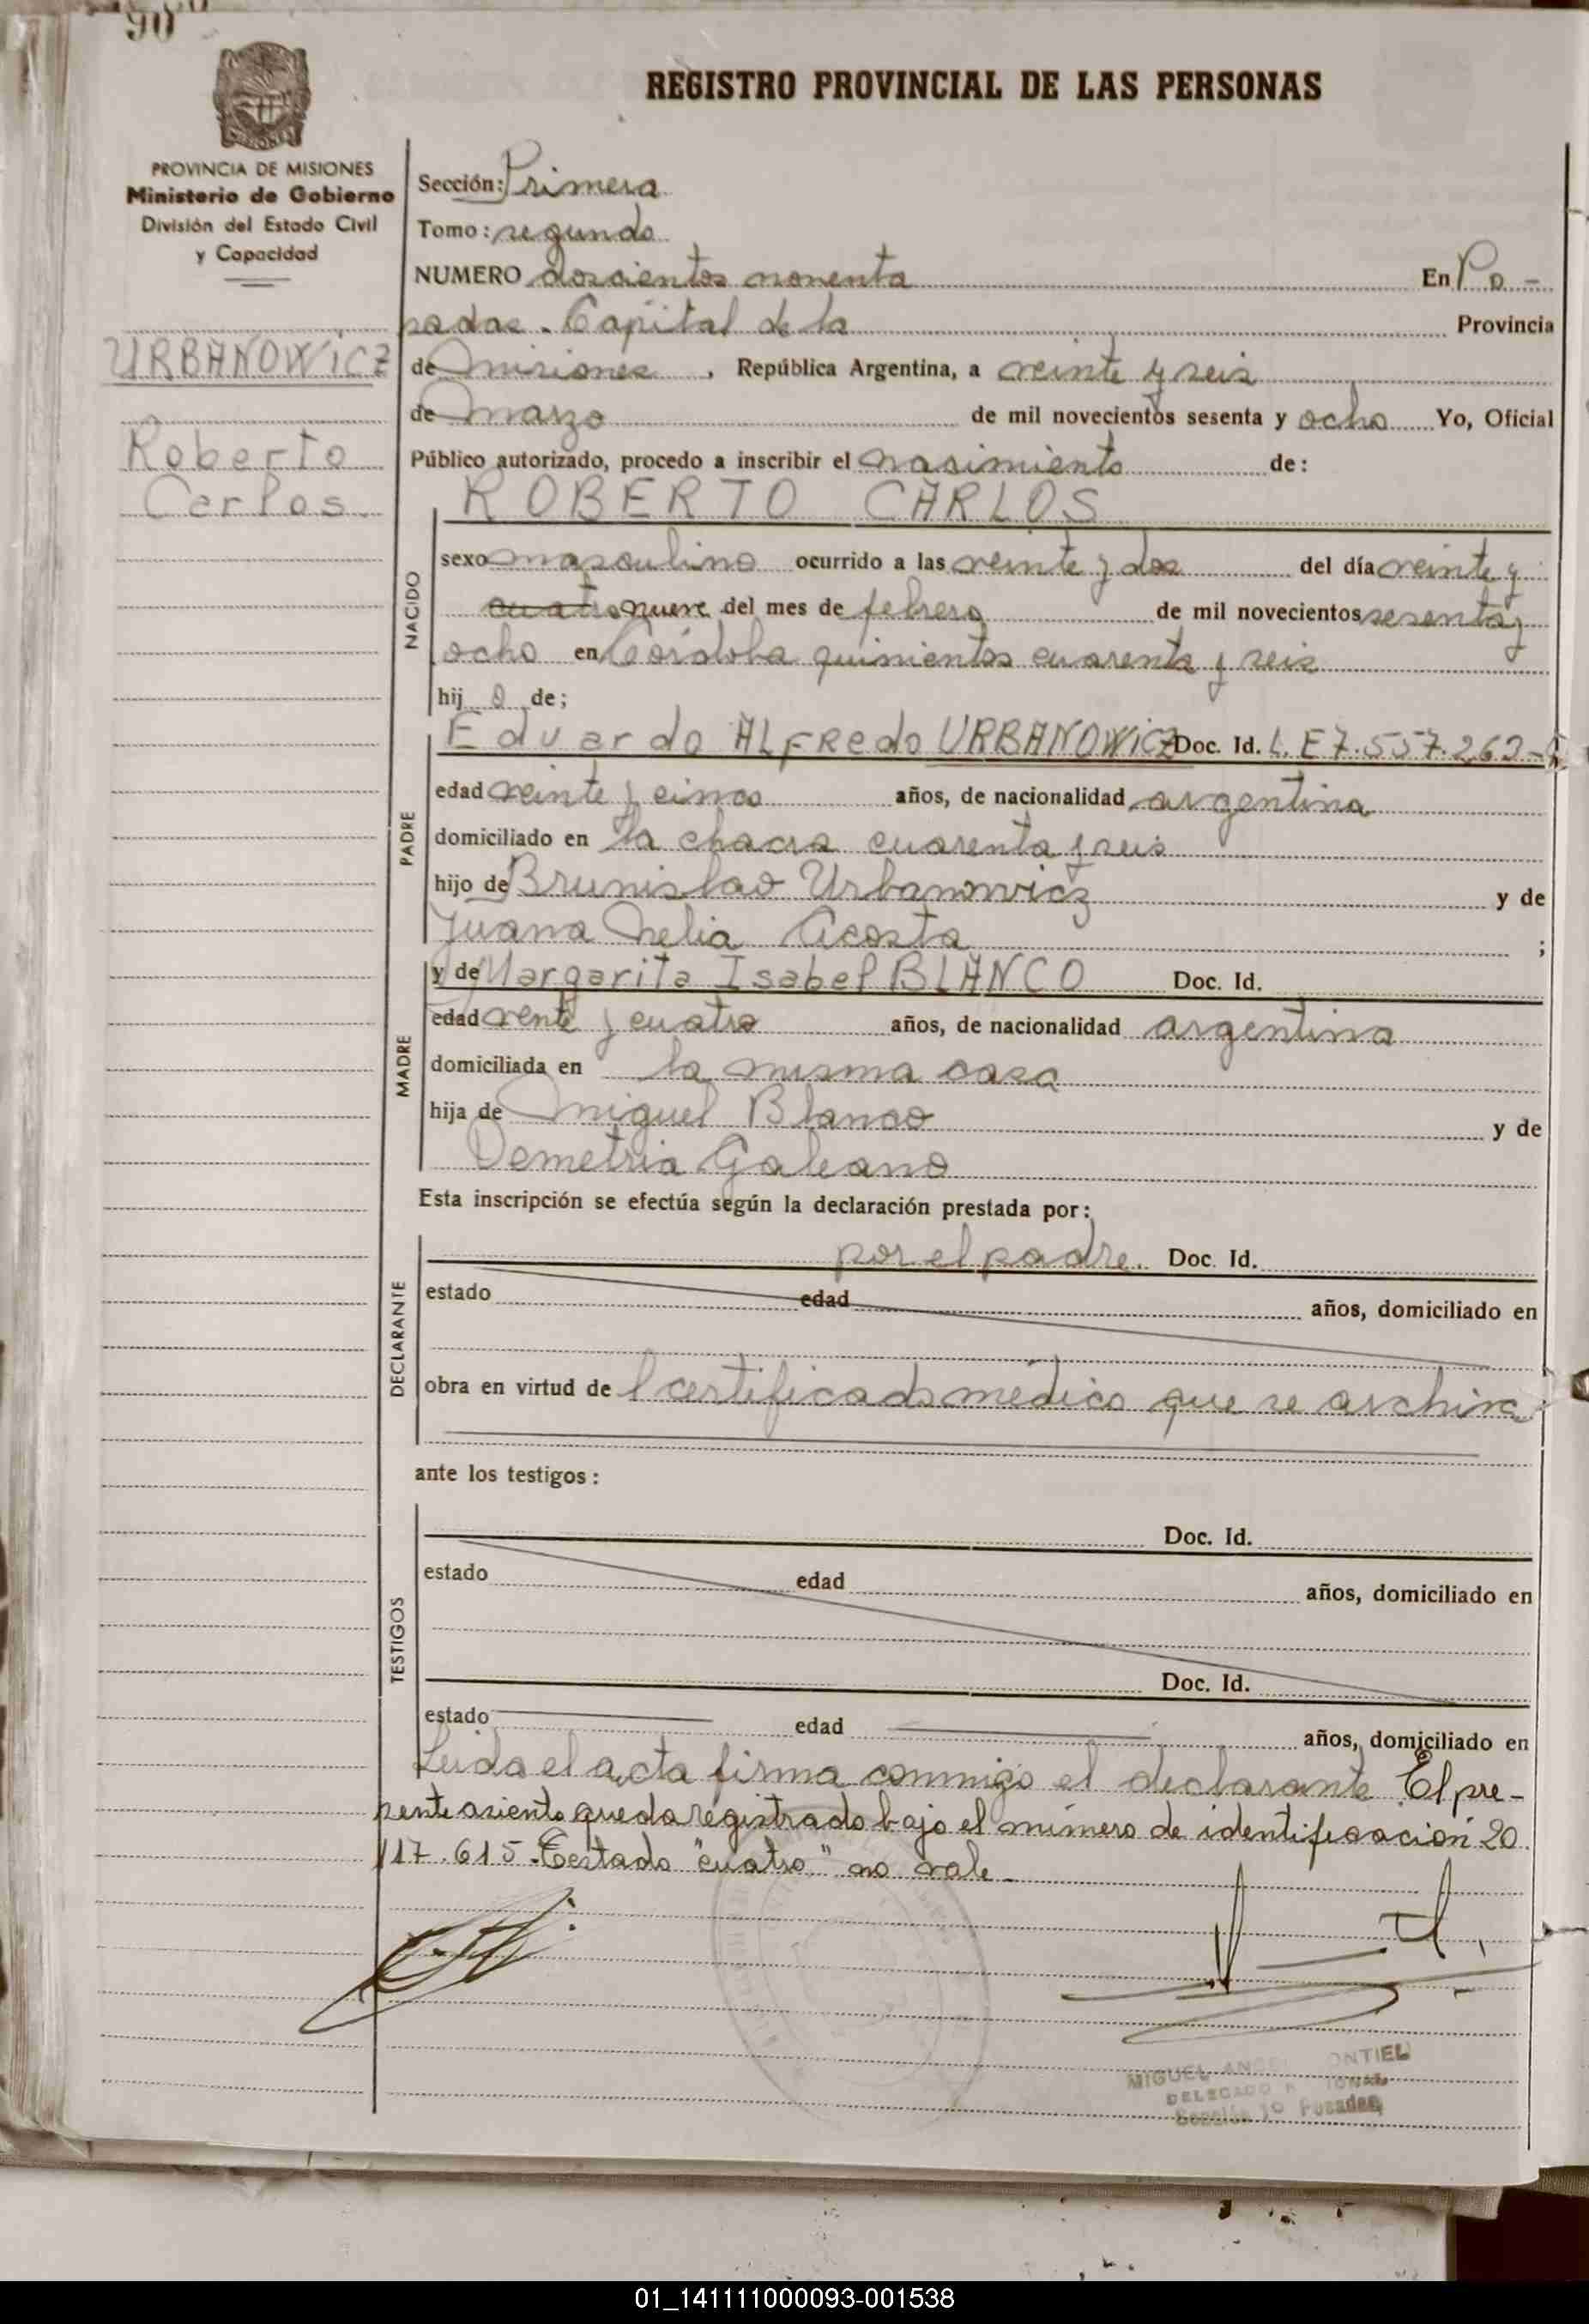 90
REGISTRO PROVINCIAL DE LAS PERSONAS
PROVINCIA DE MISIONES
Ministerio de Gobierno
División del Estado Civil
y Capacidad
URBANOWICZ
Roberto
Carlos.
Sección: Primera
Tomo: segundo
NUMERO doscientos nonenta En Po-
sadas. Capital de la Provincia
de Misiones, República Argentina, a veinte y seis
de Marzo de mil novecientos sesenta y ocho Yo, Oficial
Público autorizado, procedo a inscribir el nasimiento de:
ROBERTO CARLOS
NACIDO
sexo masculino ocurrido a las veinte y dos del día veinte y
cuatro nueve del mes de febrero de mil novecientos sesenta y
ocho en Córdoba quinientos cuarenta y seis
hijo de;
PADRE
Eduardo ALFRedo URBANOWICZ Doc. Id. L.E 7.557.262-
edad veinte y cinco años, de nacionalidad argentina
domiciliado en la chacra cuarenta y seis
hijo de Brunislao Urbanowicz y de
Juana Nelia Acosta ;
MADRE
y de Margarita Isabel BLANCO Doc. Id.
edad vente y cuatro años, de nacionalidad argentina
domiciliada en la misma casa
hija de Miguel Blanco y de
Demetria Galeano
Esta inscripción se efectúa según la declaración prestada por:
DECLARANTE
por el padre. Doc. Id.
estado edad años, domiciliado en
obra en virtud de l certificado médico que se archiva
ante los testigos:
TESTIGOS
Doc. Id.
estado edad años, domiciliado en
Doc. Id.
estado edad años, domiciliado en
Leida el acta firma conmigo el declarante. El pre-
sente asiento queda registrado bajo el número de identificación 20.
117.615. Testado "cuatro" no vale
MIGUEL ANGEL ONTIEL
DELEGADO
Sección 1º Posadas
01_141111000093-001538